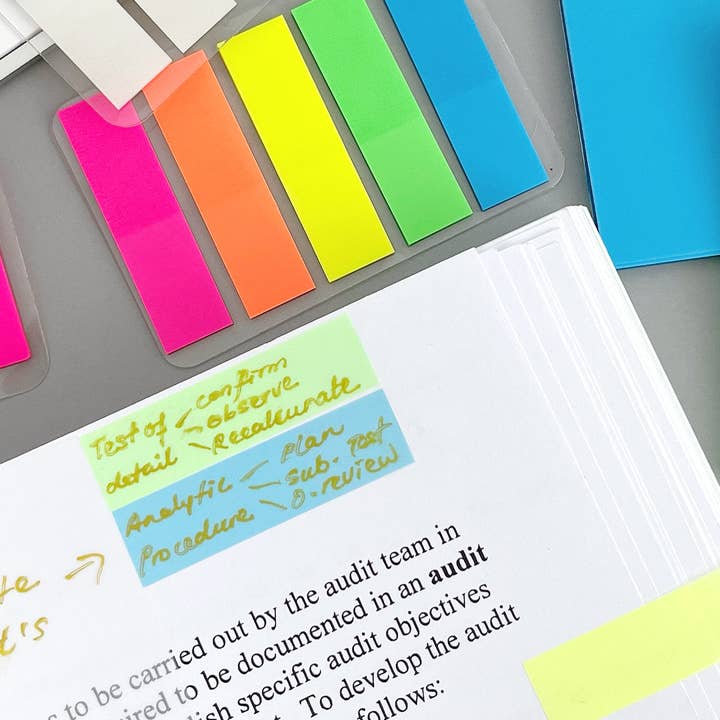 Test of - confirm
- observe
detail - Recalcunate
Analytic - Plan
- sub. Test
Procedure - o. review
to be carried out by the audit team in
to be documented in an audit
specific audit objectives
To develop the audit
follows: